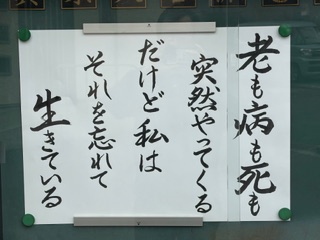 老も病も死も
突然やってくる
だけど私は
それを忘れて
生きている